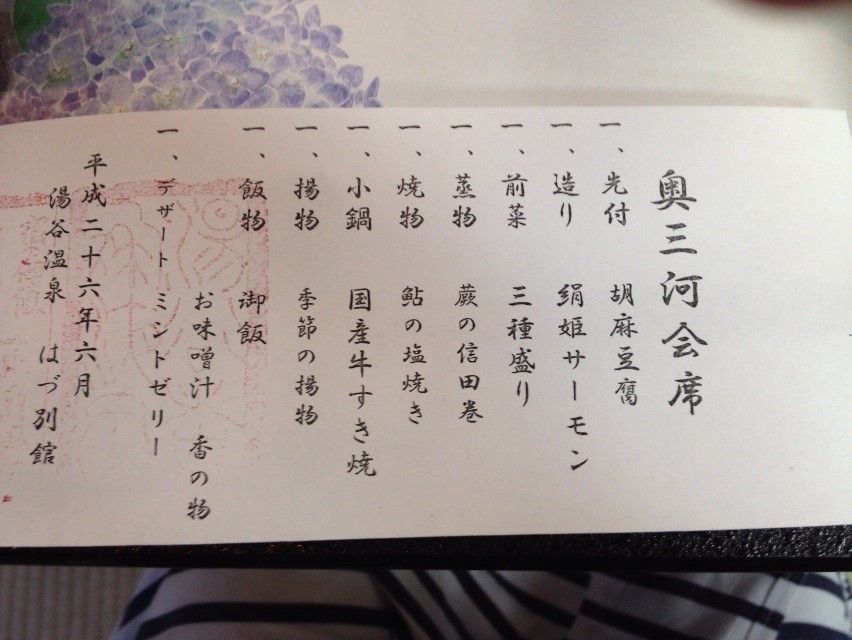 奥三河会席
一、先付 胡麻豆腐
一、造り 絹姫サーモン
一、前菜 三種盛り
一、蒸物 蕨の信田巻
一、焼物 鮎の塩焼き
一、小鍋 国産牛すき焼
一、揚物 季節の揚物
一、飯物 御飯
お味噌汁 香の物
一、デザート ミントゼリー
平成二十六年六月
湯谷温泉 はづ別館